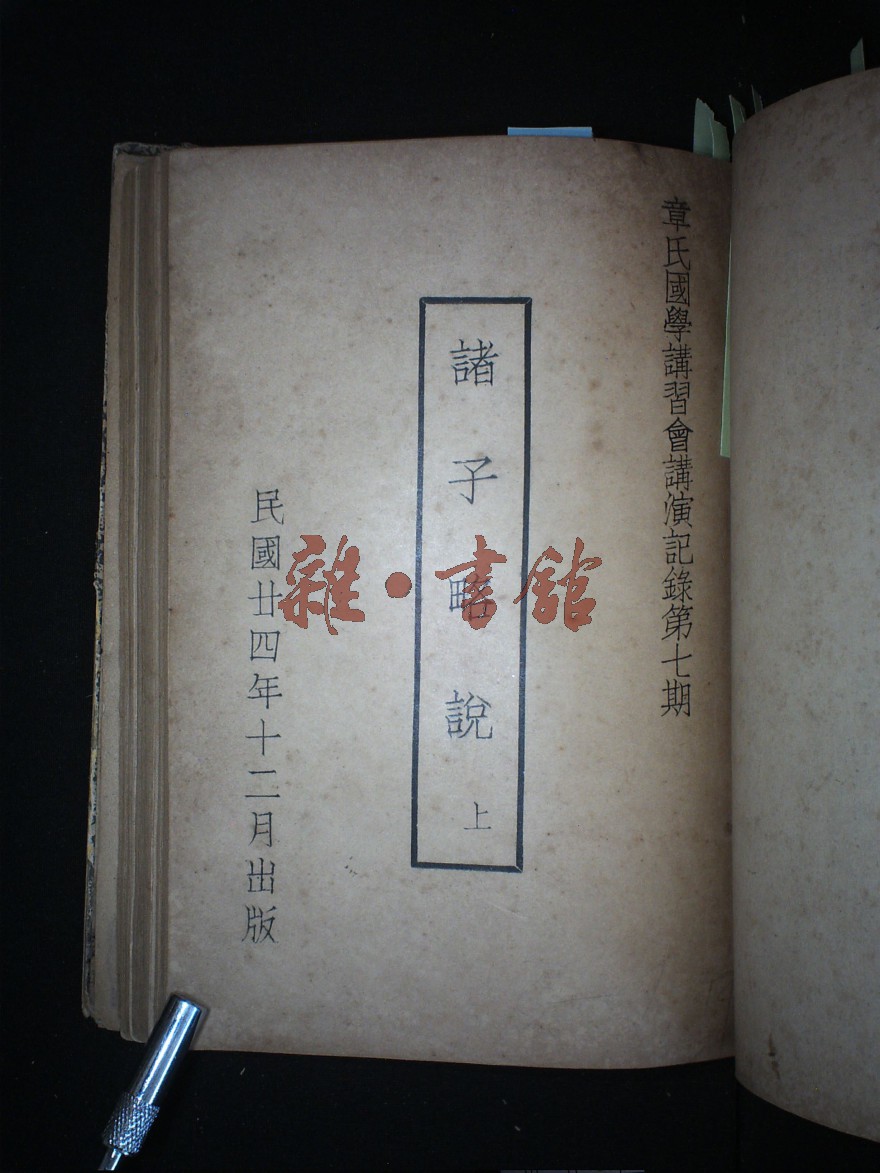 章氏國學講習會講演記錄第七期
諸子略說 上
民國廿四年十二月出版
雜·書館